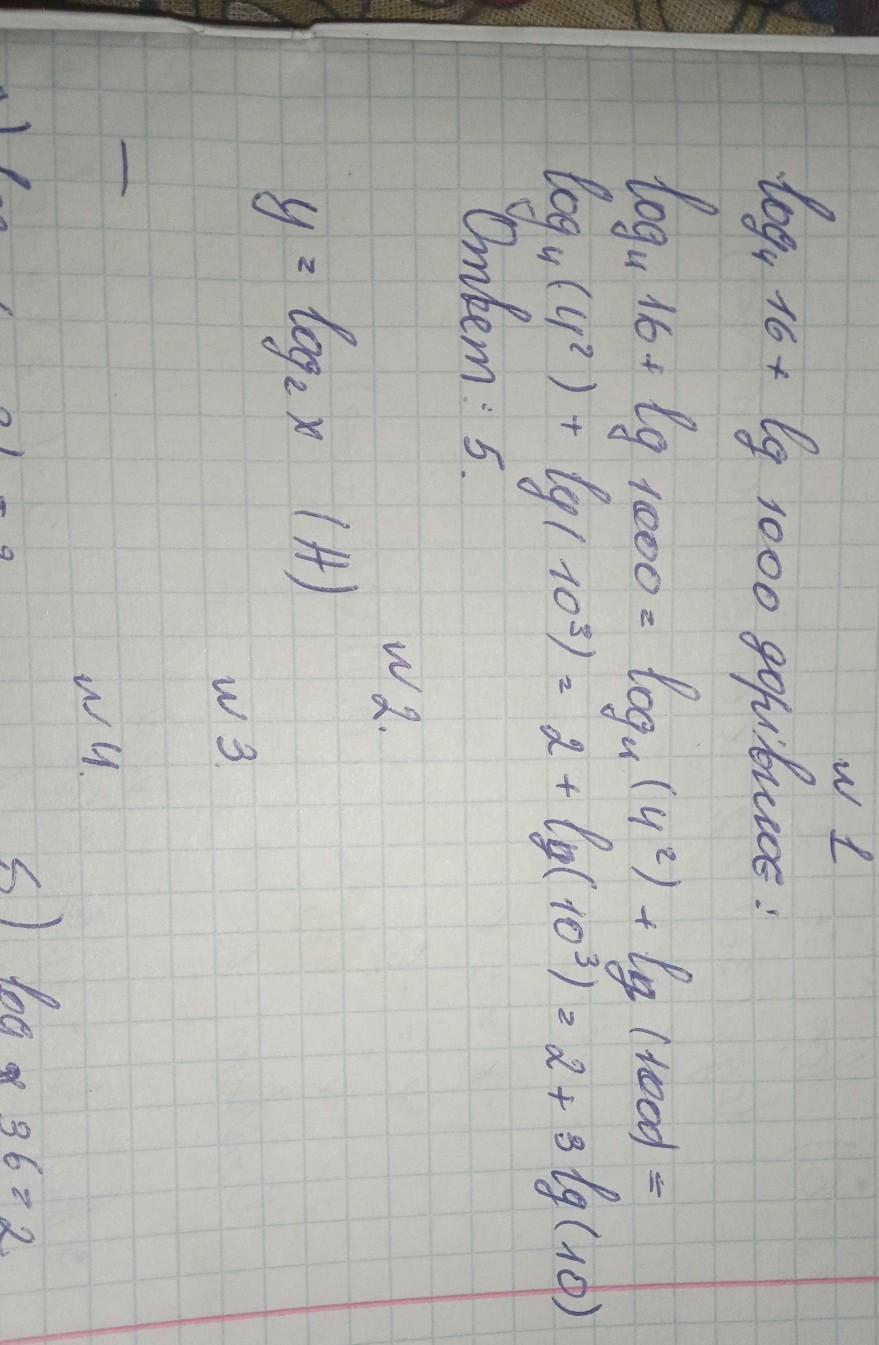 № 1
log₄ 16 + lg 1000 дорівнює:
log₄ 16 + lg 1000 = log₄ (4²) + lg (1000) =
log₄ (4²) + lg (10³) = 2 + lg (10³) = 2 + 3 lg (10)
Ответ: 5.
№ 2.
y = log₂ x (Н)
№ 3.
—
№ 4.
5) log x 36 = 2